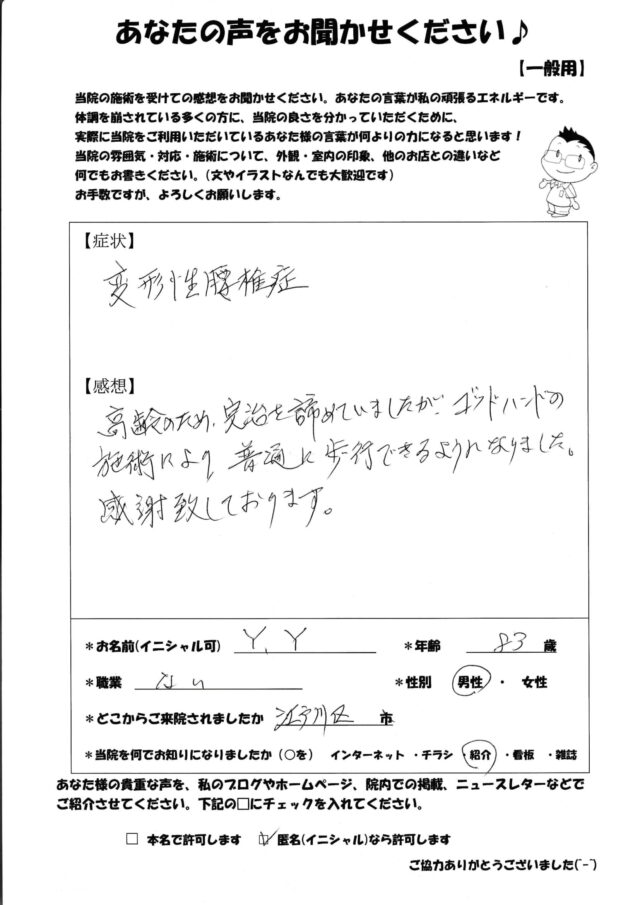 あなたの声をお聞かせください♪
【一般用】
当院の施術を受けての感想をお聞かせください。あなたの言葉が私の頑張るエネルギーです。
体調を崩されている多くの方に、当院の良さを分かっていただくために、
実際に当院をご利用いただいているあなた様の言葉が何よりの力になると思います！
当院の雰囲気・対応・施術について、外観・室内の印象、他のお店との違いなど
何でもお書きください。(文やイラストなんでも大歓迎です)
お手数ですが、よろしくお願いします。
【症状】
変形性腰椎症
【感想】
高齢のため、完治を諦めていましたが、ゴッドハンドの
施術により普通に歩行できるようになりました。
感謝致しております。
*お名前(イニシャル可) Y.Y *年齢 83 歳
*職業 ない *性別 男性 ・ 女性
*どこからご来院されましたか 江戸川区 市
*当院を何でお知りになりましたか（○を） インターネット ・チラシ ・紹介 ・看板 ・雑誌
あなた様の貴重な声を、私のブログやホームページ、院内での掲載、ニュースレターなどで
ご紹介させてください。下記の□にチェックを入れてください。
□ 本名で許可します ☑ 匿名(イニシャル)なら許可します
ご協力ありがとうございました(^-^)